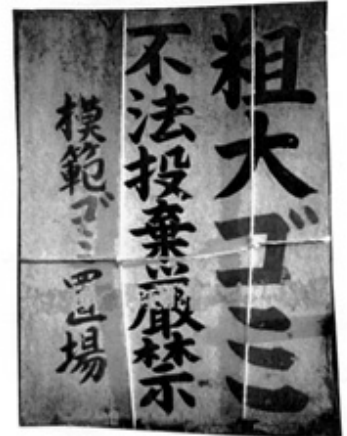 粗大ゴミ
不法投棄厳禁
模範ゴミ置場